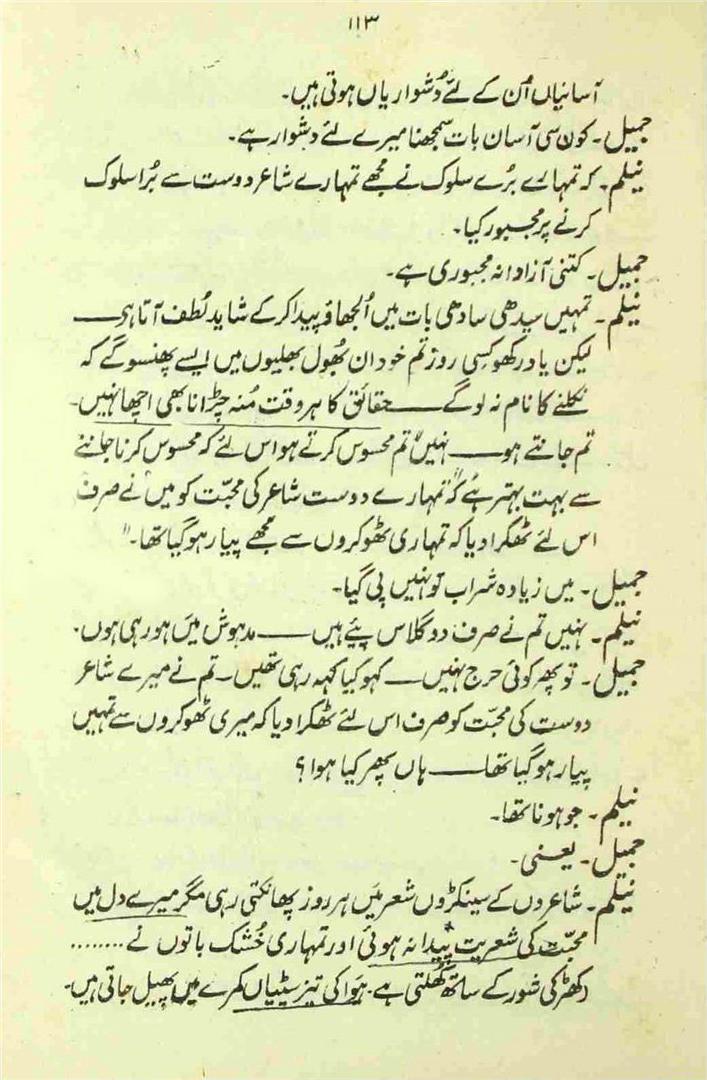 ۱۱۳
آسانیاں اُن کے لئے دُشواریاں ہوتی ہیں۔
جمیل۔ کون سی آسان بات سمجھنا میرے لئے دشوار ہے۔
نیلم۔ کہ تمہارے بُرے سلوک نے مجھے تمہارے شاعر دوست سے بُرا سلوک
کرنے پر مجبور کیا۔
جمیل۔ کتنی آزادانہ مجبوری ہے۔
نیلم۔ تمہیں سیدھی سادھی بات میں اُلجھاؤ پیدا کرکے شاید لُطف آتا ہے ——
لیکن یاد رکھو کسی روز تم خود ان بھُول بھلیوں میں ایسے پھنسو گے کہ
نکلنے کا نام نہ لو گے —— حقائق کا ہر وقت مُنہ چڑانا بھی اچھا نہیں۔
تم جانتے ہو —— نہیں تم محسوس کرتے ہو اس لئے کہ محسوس کرنا جاننے
سے بہت بہتر ہے کہ "تمہارے دوست شاعر کی محبّت کو میں نے صرف
اس لئے ٹھکرا دیا کہ تمہاری ٹھوکروں سے مجھے پیار ہو گیا تھا۔"
جمیل۔ میں زیادہ شراب تو نہیں پی گیا۔
نیلم۔ نہیں تم نے صرف دو گلاس پیئے ہیں —— مدہوش میں ہو رہی ہوں۔
جمیل۔ تو پھر کوئی حرج نہیں —— کہو کیا کہہ رہی تھیں۔ تم نے میرے شاعر
دوست کی محبّت کو صرف اس لئے ٹھکرا دیا کہ میری ٹھوکروں سے تمہیں
پیار ہو گیا تھا —— ہاں پھر کیا ہوا؟
نیلم۔ جو ہونا تھا۔
جمیل۔ یعنی۔
نیلم۔ شاعروں کے سینکڑوں شعر میں ہر روز پھانکتی رہی مگر میرے دل میں
محبّت کی شعریت پیدا نہ ہوئی اور تمہاری خُشک باتوں نے ........
دکھڑکی شور کے ساتھ کھُلتی ہے۔ ہوا کی تیز سیٹیاں کمرے میں پھیل جاتی ہیں۔